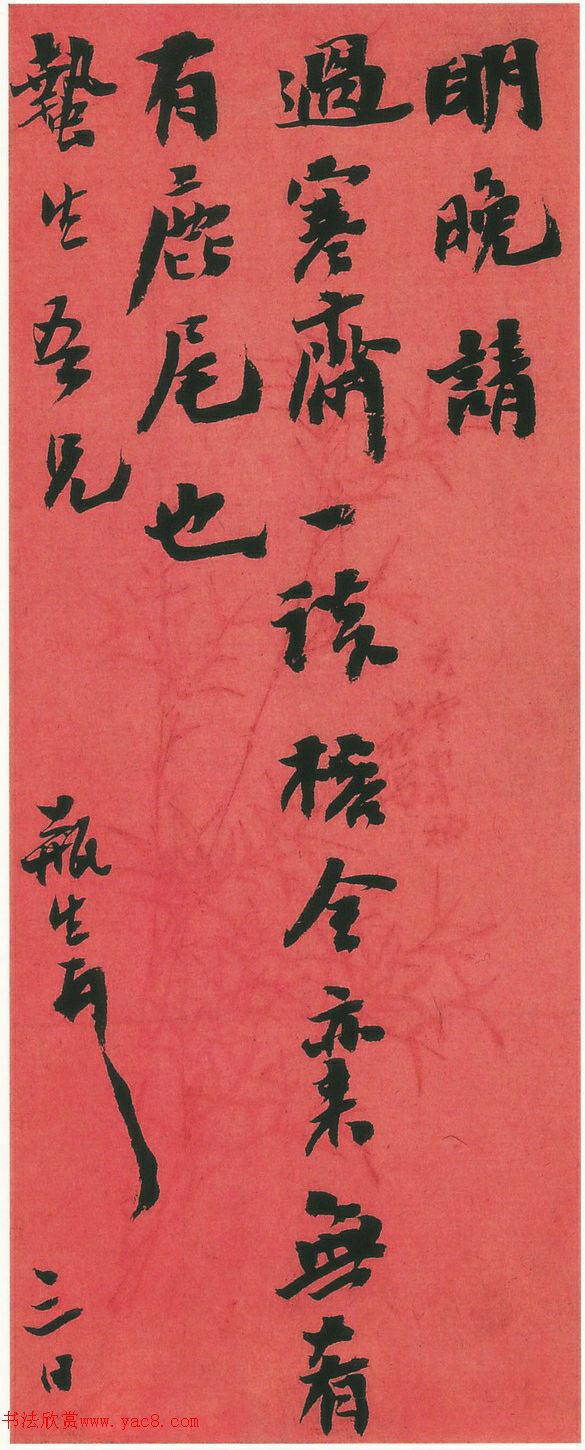 明晚請
過寒齋一談亦來無肴
有鹿尾也
蟄生吾兄
瓶生
三日
书法欣赏www.yac8.com